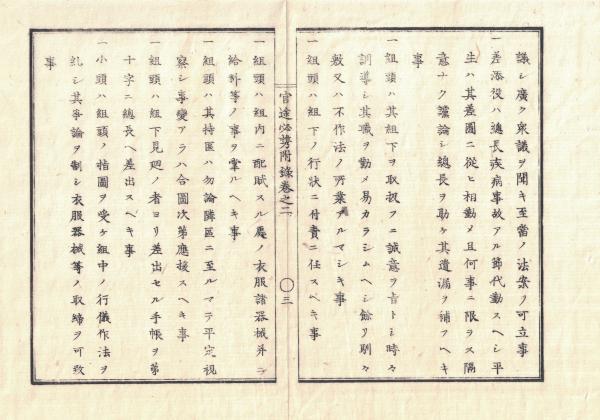 議シ廣ク衆議ヲ聞キ至當ノ法案ノ可立事
一差添役ハ總長疾病事故アル節代勤スヘシ平
生ハ其差圖ニ從ヒ相勤メ且何事ニ限ラス隔
意ナク議論シ總長ヲ助ケ其遺漏ヲ補フヘキ
事
一組頭ハ其組下ヲ取扱フニ誠意ヲ旨トシ時々
訓導シ其職ヲ勤メ易カラシムヘシ餘リ馴々
敷又ハ不作法ノ所業アルマシキ事
一組頭ハ組下ノ行狀ニ付責ニ任スベキ事
官途必携附錄卷之二 〇三
一組頭ハ組内ニ配賦スル處ノ衣服諸器械幷ニ
給料等ノ事ヲ掌ルヘキ事
一組頭ハ其持區ハ勿論隣區ニ至ルマテ平定視
察シ事變アラハ合圖次第應援スヘキ事
一組頭ハ組下見廻ノ者ヨリ差出セル手帳ヲ第
十字ニ總長ヘ差出スベキ事
一小頭ハ組頭ノ指圖ヲ受ケ組中ノ行儀作法ヲ
糺シ其爭論ヲ制シ衣服器械等ノ取締ヲ可致
事